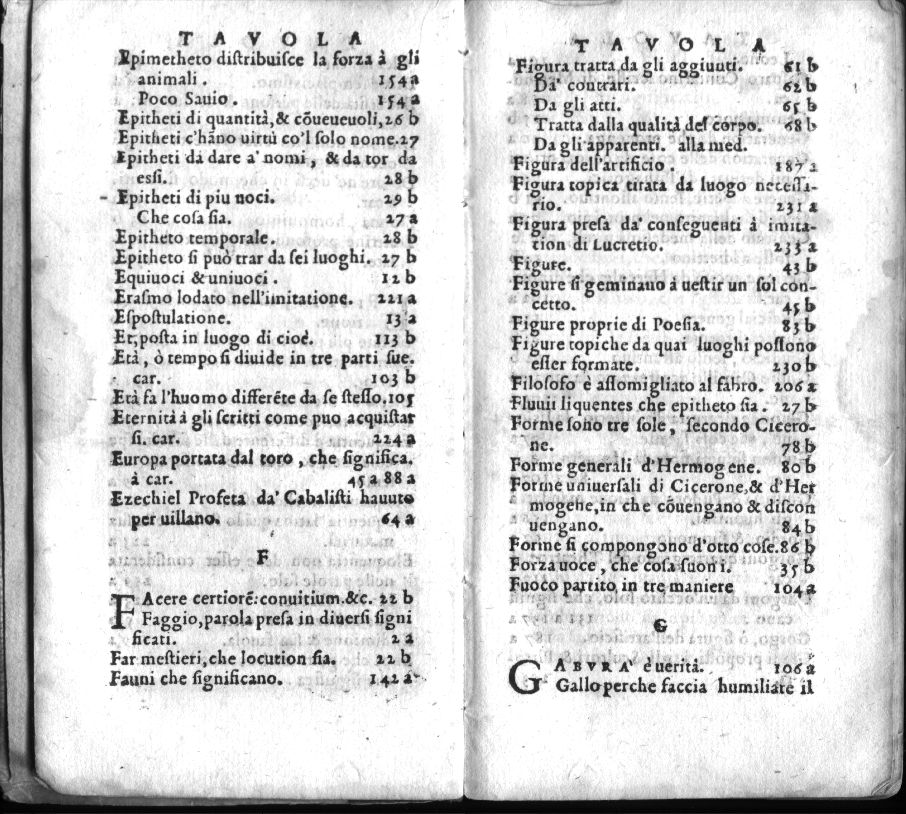 TAVOLA
Epimetheto distribuisce la forza à gli
animali. 154a
Poco Sauio. 154a
Epitheti di quantità, & cōueueuoli, 26 b
Epitheti c'hāno uirtù co'l solo nome. 27
Epitheti da dare a' nomi, & da tor da
essi. 28 b
Epitheti di piu uoci. 29 b
Che cosa sia. 27 a
Epitheto temporale. 28 b
Epitheto si può trar da sei luoghi. 27 b
Equiuoci & uniuoci. 12 b
Erasmo lodato nell'imitatione. 221 a
Espostulatione. 13 a
Et, posta in luogo di cioè. 113 b
Età, ò tempo si diuide in tre parti sue.
car. 103 b
Età fa l'huomo differēte da se stesso, 105
Eternità à gli scritti come puo acquistar
si. car. 224 a
Europa portata dal toro, che significa.
à car. 45 a 88 a
Ezechiel Profeta da' Cabalisti hauuto
per uillano. 64 a
F
FAcere certiorē: conuitium. &c. 22 b
Faggio, parola presa in diuersi signi
ficati. 2 a
Far mestieri, che locution sia. 22 b
Fauni che significano. 142 a
TAVOLA
Figura tratta da gli aggiunti. 61 b
Da' contrari. 62 b
Da gli atti. 65 b
Tratta dalla qualità del corpo. 68 b
Da gli apparenti. alla med.
Figura dell'artificio. 187 a
Figura topica tirata da luogo necessa-
rio. 231 a
Figura presa da' conseguenti à imita-
tion di Lucretio. 233 a
Figure. 43 b
Figure si geminano à uestir un sol con-
cetto. 45 b
Figure proprie di Poesia. 83 b
Figure topiche da quai luoghi possono
esser formate. 230 b
Filosofo è assomigliato al fabro. 206 a
Fluuii liquentes che epitheto sia. 27 b
Forme sono tre sole, secondo Cicero-
ne. 78 b
Forme generali d'Hermogene. 80 b
Forme uniuersali di Cicerone, & d'Her
mogene, in che cōuengano & discon
uengano. 84 b
Forme si compongono d'otto cose. 86 b
Forza uoce, che cosa suoni. 35 b
Fuoco partito in tre maniere 104 a
G
GABVRA' è uerità. 106 a
Gallo perche faccia humiliare il